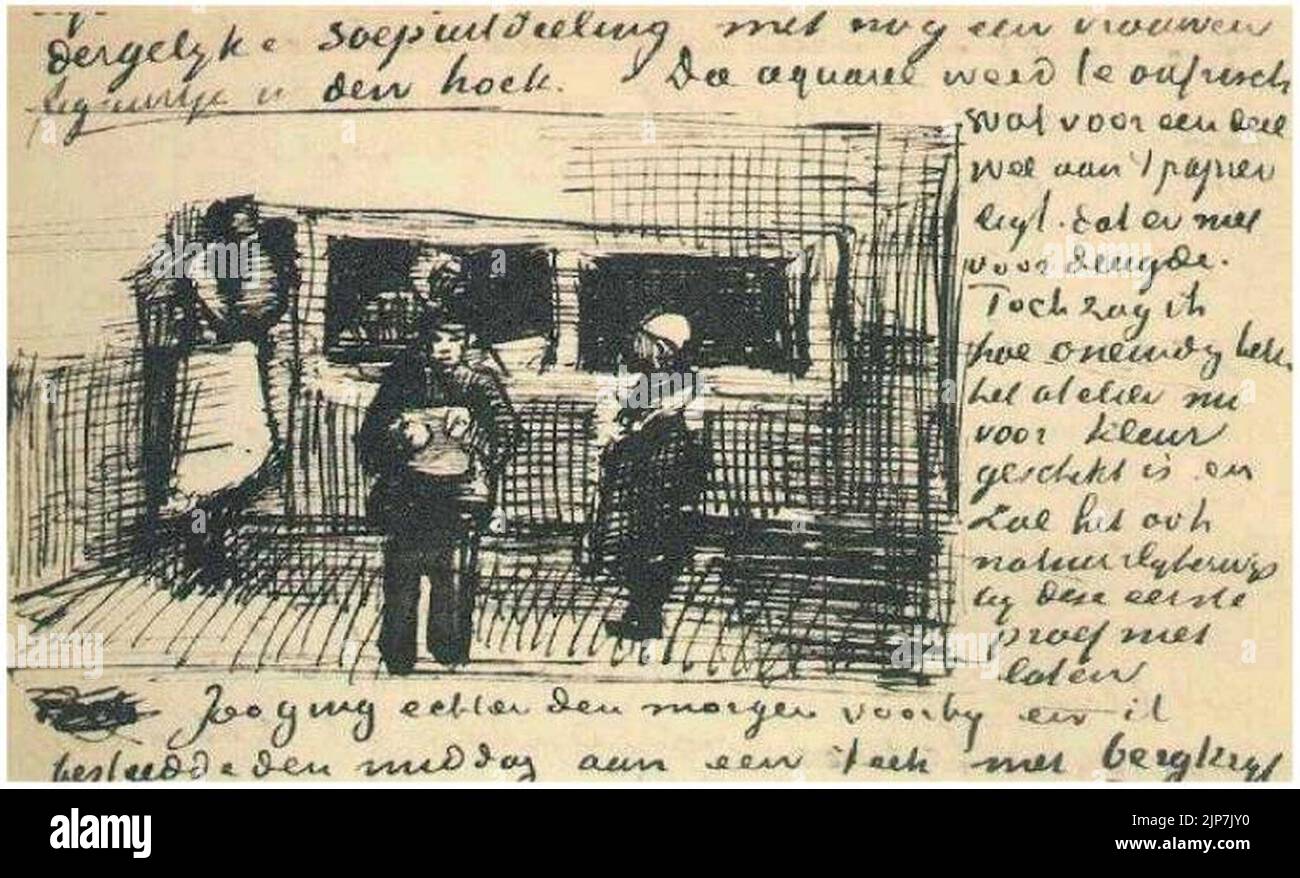 dergelyke soepuitdeeling met nog een vrouwen
figuurtje in den hoek. Die aquarel werd te onfrisch
wat voor een deel
wel aan 't papier
ligt. dat er niet
voor deugde.
Toch zag ik
hoe oneindig beter
het atelier nu
voor kleur
geschikt is en
zal het ook
natuurlykerwys
by deze eerste
proef niet
laten
Zoo ging echter den morgen voorby en ik
besteedde den middag aan een teek met bergkryt
a
alamy
alamy
Image ID: 2JP7JY0
www.alamy.com
2JP7JY0